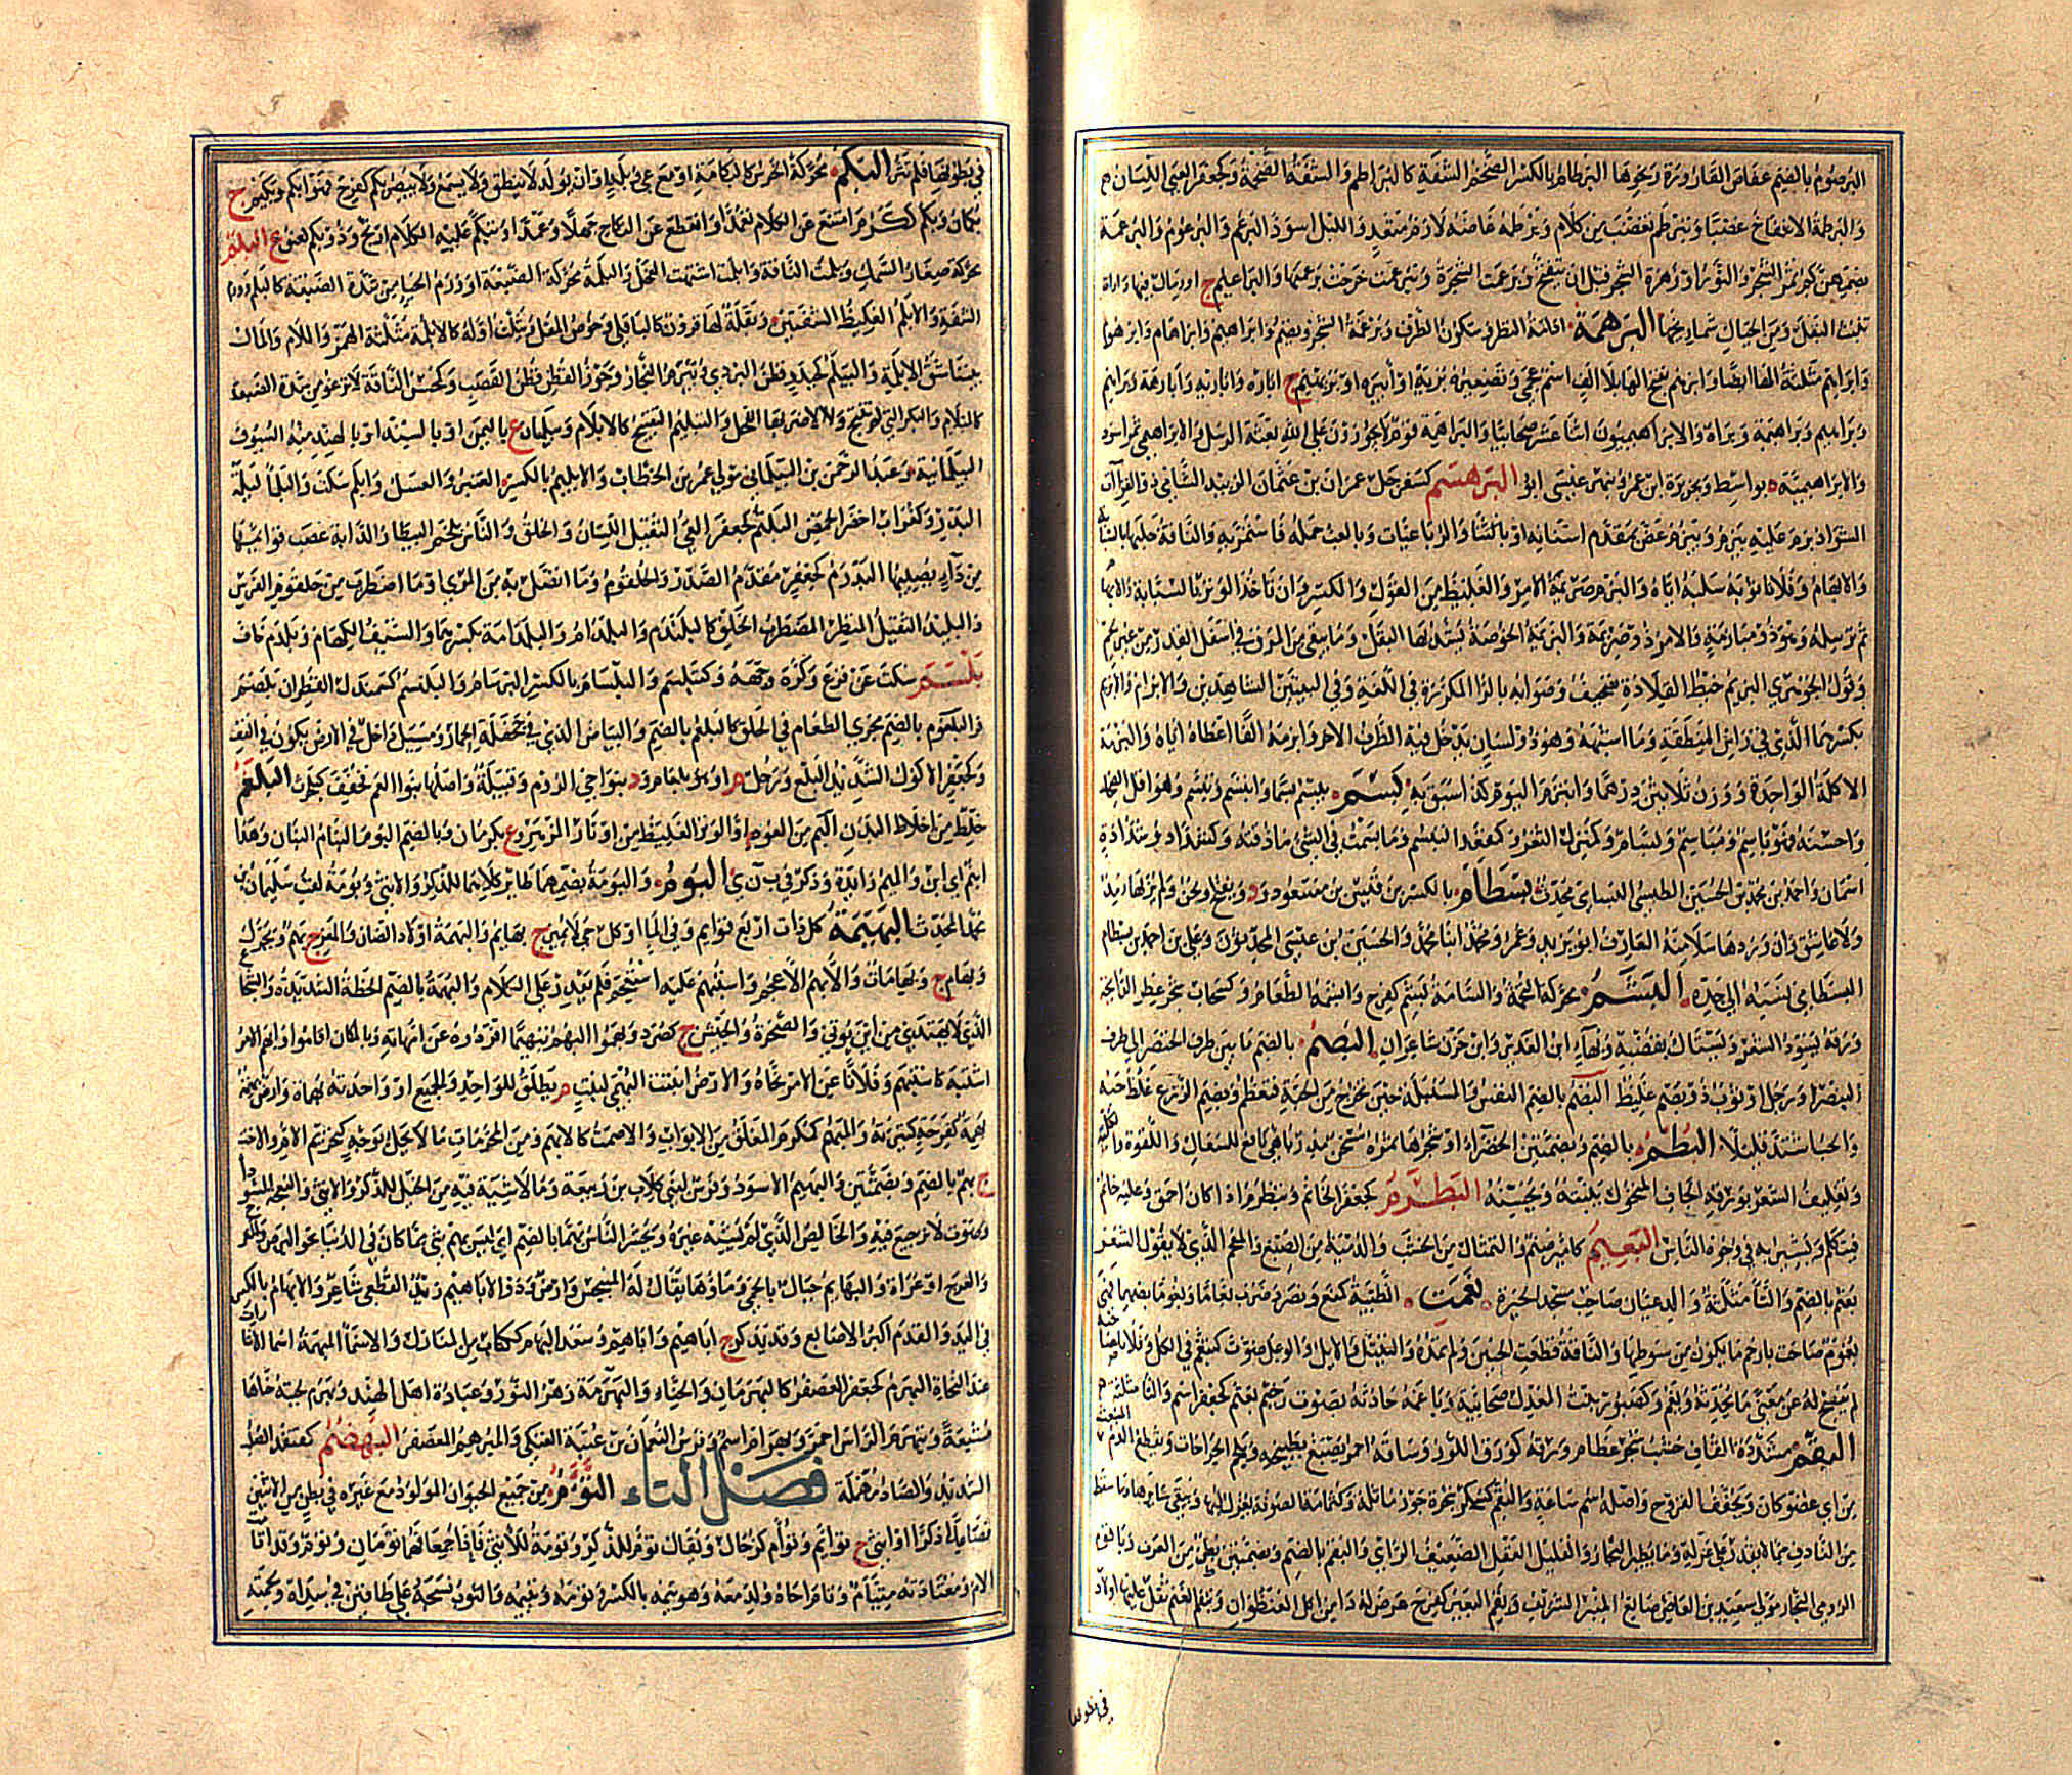 البرصوم بالضم عفاص القارورة ونحوها البرطام بالكسر الضخم الشفة كالبراطم والشفة الضخمة وكجعفر العيي اللسان
والبرطمة الانتفاخ غضبا وتبرطم تغضب من كلام وبرطمه غاضه لازم متعد والليل اسود البرعم والبرعوم والبرعمة
بضمهن كم ثمر الشجر والنور او زهرة الشجر قبل ان تنفتح وبرعمت الشجرة وتبرعمت خرجت برعمتها والبراعيم ج او رمال فيها دارات
تنبت البقل ومن الجبال شماريخها البرهمة ادامة النظر وسكون الطرف وبرعمة الشجر ويضم وابراهيم وابراهام وابراهوم
وابراهيم مثلثة الهاء ايضا وابرهم بفتح الهاء بلا الف اسم عجمي وتصغيره بريه او ابيره او بريهيم ج اباره واباريه وابارهة وبراهيم
وبراهم وبراهمة وبراه والابراهيميون اثنا عشر صحابيا والبراهمة قوم لا يجوزون على الله بعثة الرسل والابراهيمي تمر اسود
والابراهيمية ه بواسط وبجزيرة ابن عمر وبنهر عيسى ابو البرهسم كسفرجل عمران بن عثمان الزبيدي الشامي ذو القراآت
الشواذ برم عليه يبرم ويبرم عض بمقدم اسنانه او بالثنايا والرباعيات وبالعبء حمله فاستمر به والناقة حلبها بالسبابة
والابهام وفلانا ثوبه سلبه اياه والبزم صريمة الامر والغليظ من القول والكسر وان تاخذ الوتر بالسبابة والابهام
ثم ترسله وهو ذو مبازمة في الامر ذو صريمة والبزيم الخوصة يشد بها البقل وما يبقى من المرق في اسفل القدر من غير لحم
وقول الجوهري البزيم خيط القلادة تصحيف وصوابه بالراء المكررة في اللغة وفي البيتين الشاهدين والابزام والابزيم
بكسرهما الذي في راس المنطقة وما اشبهه وهو ذو لسان يدخل فيه الطرف الاخر وابزمه الفا اعطاه اياه والبزمة
الاكلة الواحدة ووزن ثلاثين درهما وابتزم اليوم كذا سبق به بسم يبسم بسما وابتسم وتبسم وهو اقل الضحك
واحسنه فهو باسم ومبسام وبسام وكمنزل الثغر وكمقعد التبسم وما بسمت في الشيء ما ذقته وكشداد بن
اسمان واحمد بن محمد بن الحسين الطبسي البسامي محدث بسطام بالكسر بن قيس بن مسعود ود ويفتح او لحن ولم ير لها رمد
ولا عاشق وان وردها سلا منه العارف ابو يزيد وعمر ومحمد ابنا محمد والحسين بن عيسى المحدثون وعلي بن احمد بن بسطام
البسطامي نسبة الى جده البشم محركة التخمة والسامة بشم كفرح وابشمه الطعام وكسحاب شجر عطر الرائحة
ورقه يسود الشعر ويستاك بقضبه وبشامة ابن الغدير وابن حزن شاعران البصم بالضم ما بين طرف الخنصر الى طرف
البنصر ورجل او ثوب ذو بصم غليظ البضم بالضم النفس والسنبلة حين تخرج من الحبة فتعظم وبضم الزرع غلظ حبه
والحب اشتد قليلا البطم بالضم وبضمتين الحبة الخضراء او شجرها ثمره مسخن مدر باهي نافع للسعال واللقوة والكلية
وتغليف الشعر بورقه الجاف المنخول ينبته ويحسنه البظرم كجعفر الخاتم وتبظرم اذا كان احمق وعليه خاتم
فيتكلم ويشير به في وجوه الناس البعيم كامير صنم والتمثال من الخشب والدمية من الصمغ والمفحم الذي لا يقول الشعر
بغثم بالضم والثا مثلثة والد عيان صاحب مسجد الحيرة بغمت الظبية كمنع ونصر وضرب بغاما وبغوما بضمهما فهي
بغوم صاحت بارخم ما يكون من صوتها والناقة قطعت الحنين ولم تمده والثيتل والايل والوعل صوت كتبغم في الكل وفلانا
لم يفصح له عن معنى ما يحدثه وبغم وكصبور بنت المعدل صحابية وباغمه حادثه بصوت رخيم بعثم كجعفر اسم والثا مثلثة
البقم مشددة القاف خشب شجره عظام وورقه كورق اللوز وساقه احمر يصبغ بطبيخه ويلحم الجراحات ويقطع الدم المنبعث
من اي عضو كان ويجفف القروح واصله سم ساعة والبقم كسكر شجرة جوز ماثل وكثمامة الصوفة يغزل لبها ويبقى سائرها وما سقط
من النادف مما لا يقدر على غزله وما يطير النجار والقليل العقل الضعيف الراي والبقم بالضم وبضمتين بطن من العرب وباقوم
الرومي النجار مولى سعيد بن العاص صانع المنبر الشريف وبقم البعير كفرح عرض له داء من اكل العنظوان وتبقم الغنم ثقل عليها اولادها
في بطونها
في بطونها فلم تثر البكم محركة الخرس كالبكامة او مع عي وبله او ان يولد لا ينطق ولا يسمع ولا يبصر بكم كفرح فهو ابكم وبكيم ج
بكمان وبكم ككرم امتنع عن الكلام تعمدا وانقطع عن النكاح جهلا او عمدا وتبكم عليه الكلام ارتج وذو بكم لعنق ع البلم
محركة صغار السمك وبلمت الناقة وابلمت اشتهت الفحل والبلمة محركة الضبعة او ورم الحياء من شدة الضبعة كالبلم وورم
الشفة والابلم الغليظ الشفتين وبقلة لها قرون كالباقلي وخوص المقل ويثلث اوله كالابلمة مثلثة الهمزة واللام والمال
بيننا شق الابلمة والبيلم كحيدر قطن البردي وبيرم النجار وجوز القطن وقطن القصب وكمحسن الناقة لا ترغو من شدة الضبعة
كالمبلام والبكر التي لم تنتج ولا ضربها الفحل والتبليم التقبيح كالابلام وبيلمان ع باليمن او بالسند او بالهند منه السيوف
البيلمانية وعبد الرحمن بن البيلماني مولى عمر بن الخطاب والابليم بالكسر العنبر والعسل وابلم سكت والبلماء ليلة
البدر وكغراب اخضر الحمض البلتم كجعفر العيي الثقيل اللسان والخلق والناس بلجم البيطار الدابة عصب قوائمها
من داء يصيبها البلدم كجعفر مقدم الصدر والحلقوم وما اتصل به من المري او ما اضطرب من حلقوم الفرس
والبليد الثقيل المنظر المضطرب الخلق كالبلندم والبلدامة بكسرهما والسيف الكهام وبلدم خاف
بلسم سكت عن فزع وكره وجهه كتبلسم والبلسام بالكسر البرسام والبلنسم كسمندل القطران بلصم فر
البلعوم بالضم مجرى الطعام في الحلق كالبلعم بالضم والبياض الذي في جحفلة الحمار ومسيل داخل في الارض يكون في القف
وكجعفر الاكول الشديد البلع ورجل م او هو بلعام ود بنواحي الروم وقبيلة واصلها بنو العم فخفف كبلحرث البلغم
خلط من اخلاط البدن البم من العود او الوتر الغليظ من اوتار المزهر وع بكرمان وبالضم البوم النبات وهذا
ابنم اي ابن والميم زائدة وذكر في ب ن ي البوم والبومة بضمهما طائر كلاهما للذكر والانثى وبومة لقب سليمان
محمد المحدث البهيمة كل ذات اربع قوائم ولو في الماء او كل حي لا يميز ج بهائم والبهمة اولاد الضان والمعز ج بهم ويحرك
وبهام ج وبهامات والابهم الاعجم واستبهم عليه استعجم فلم يقدر على الكلام والبهمة بالضم الخطة الشديدة والشجاع
الذي لا يهتدى من اين يؤتى والصخرة والجيش ج كصرد وبهموا البهم تبهيما افردوه عن امهاته وبالمكان اقاموا وابهم الامر
اشتبه كاستبهم وفلانا عن الامر نحاه والارض انبتت البهمى لنبت م يطلق للواحد والجميع او واحدته بهماة وارض بهمة
بهمة كفرحة كثيرته والمبهم كمكرم المغلق من الابواب والاصمت كالابهم ومن المحرمات ما لا يحل بوجه كتحريم الام والاخت
ج بهم بالضم وبضمتين والبهيم الاسود وفرس لبني كلاب بن ربيعة وما لا شية فيه من الخيل للذكر والانثى والنعجة السودا
وصوت لا ترجيع فيه والخالص الذي لم يشبه غيره ويحشر الناس بهما بالضم اي ليس بهم شيء مما كان في الدنيا نحو البرص
والعرج او عراة والبهائم جبال بالحمى وماؤها يقال له المنبجس وارض وذو الاباهيم زيد القطعي شاعر والابهام بالكسر
في اليد والقدم اكبر الاصابع وقد تذكر ج اباهيم واباهم وسعد البهام ككتاب من المنازل والاسماء المبهمة اسماء الاشارات
عند النحاة البهرم كجعفر العصفر كالبهرمان والحناء والبهرمة زهر النور وعبادة اهل الهند وبهرم لحيته حناها
مشبعة وتبهرم الراس احمر وبهرام اسم وفرس النعمان بن عتبة العتكي والمبهرم المعصفر البهصم كقنفذ الصلب
الشديد والصاد مهملة فصل التاء التوءم من جميع الحيوان المولود مع غيره في بطن من الاثنين
فصاعدا ذكرا او انثى ج توائم وتؤام كرخال ويقال توءم للذكر وتوءمة للانثى فاذا جمعا فهما توءمان وتوءم وقد اتامت
الام ومعتادته متئام وتاءم اخاه ولد معه وهو تئمه بالكسر وتوءمه وتئيمه والثوب نسجه على طاقين في سداه ولحمته